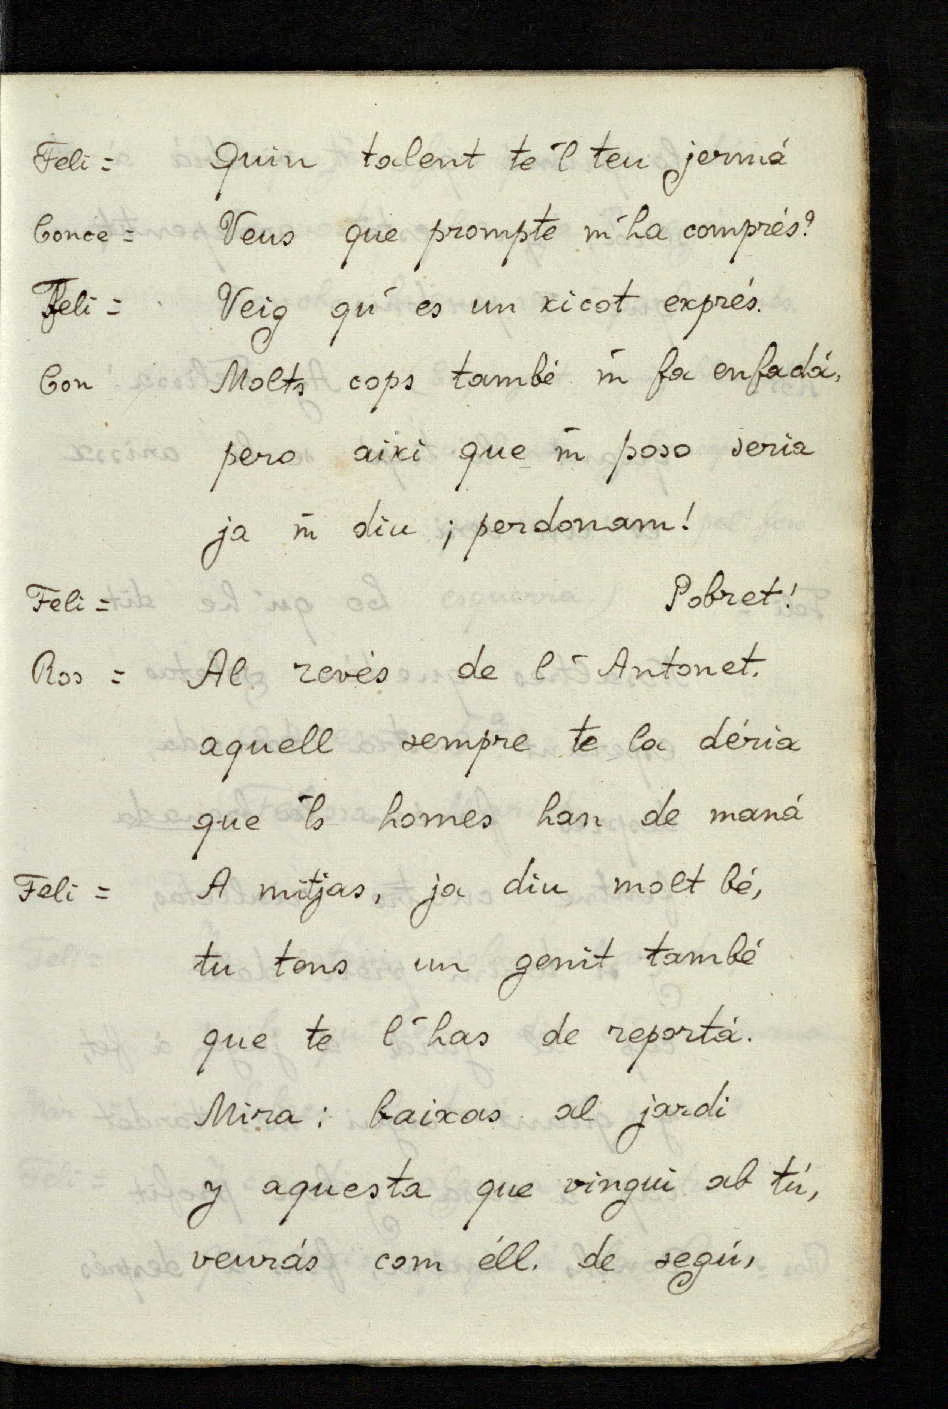 Feli = Quin talent te 'l teu jermá
Conce = Veus que prompte m'ha comprés?
Feli = Veig qu' es un xicot exprés.
Con Molts cops també m' fa enfadá,
pero aixi que m' poso seria
ja m' diu ; perdonam!
Feli = Pobret!
Ros = Al revés de l' Antonet.
aquell sempre te la déria
que 'ls homes han de maná
Feli = A mitjas, ja diu molt bé,
tu tens un genit també
que te l' has de reportá.
Mira : baixas al jardi
y aquesta que vingui ab tú,
veurás com éll. de segú,